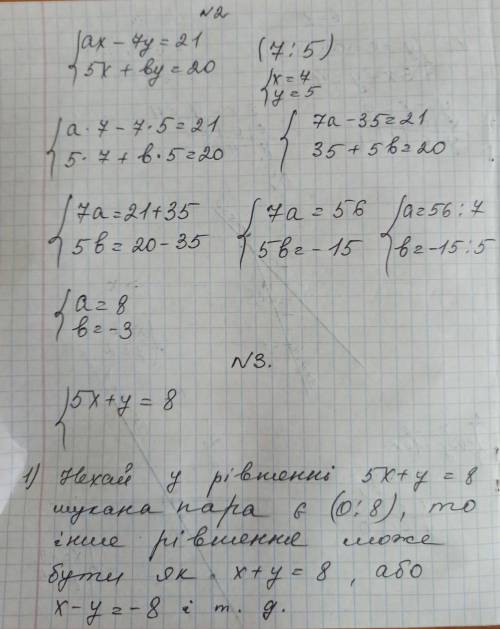 №2
{ax - 7y = 21 (7:5)
{5x + by = 20 {x = 7
y = 5
{a·7 - 7·5 = 21 { 7a - 35 = 21
{5·7 + b·5 = 20 35 + 5b = 20
{7a = 21 + 35 {7a = 56 {a = 56 : 7
{5b = 20 - 35 5b = -15 b = -15 : 5
{a = 8
b = -3
№3.
{5x + y = 8
1) Нехай у рівненні 5x + y = 8
шукана пара є (0:8), то
інше рівнення може
бути як x + y = 8, або
x - y = -8 і т. д.